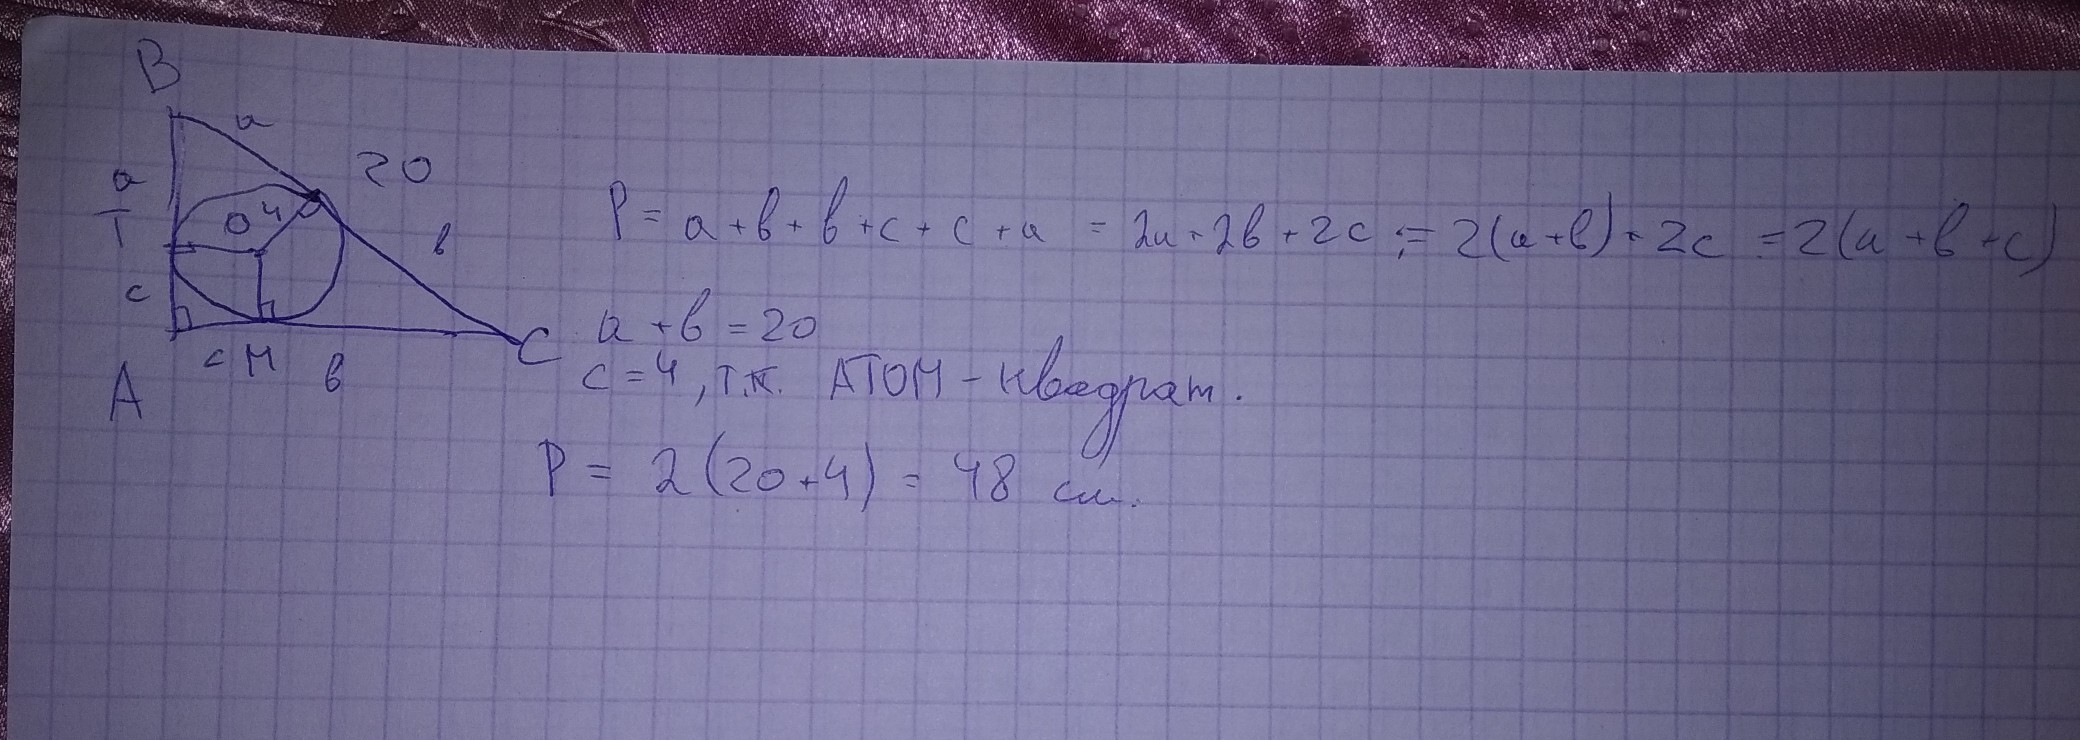 B
a
20
a
T
O 4
P = a + b + b + c + c + a = 2a + 2b + 2c ; = 2(a+b) + 2c = 2(a + b + c)
b
c
a + b = 20
C
c M b
c = 4, т.к. АТОМ - квадрат.
A
P = 2(20+4) = 48 см.